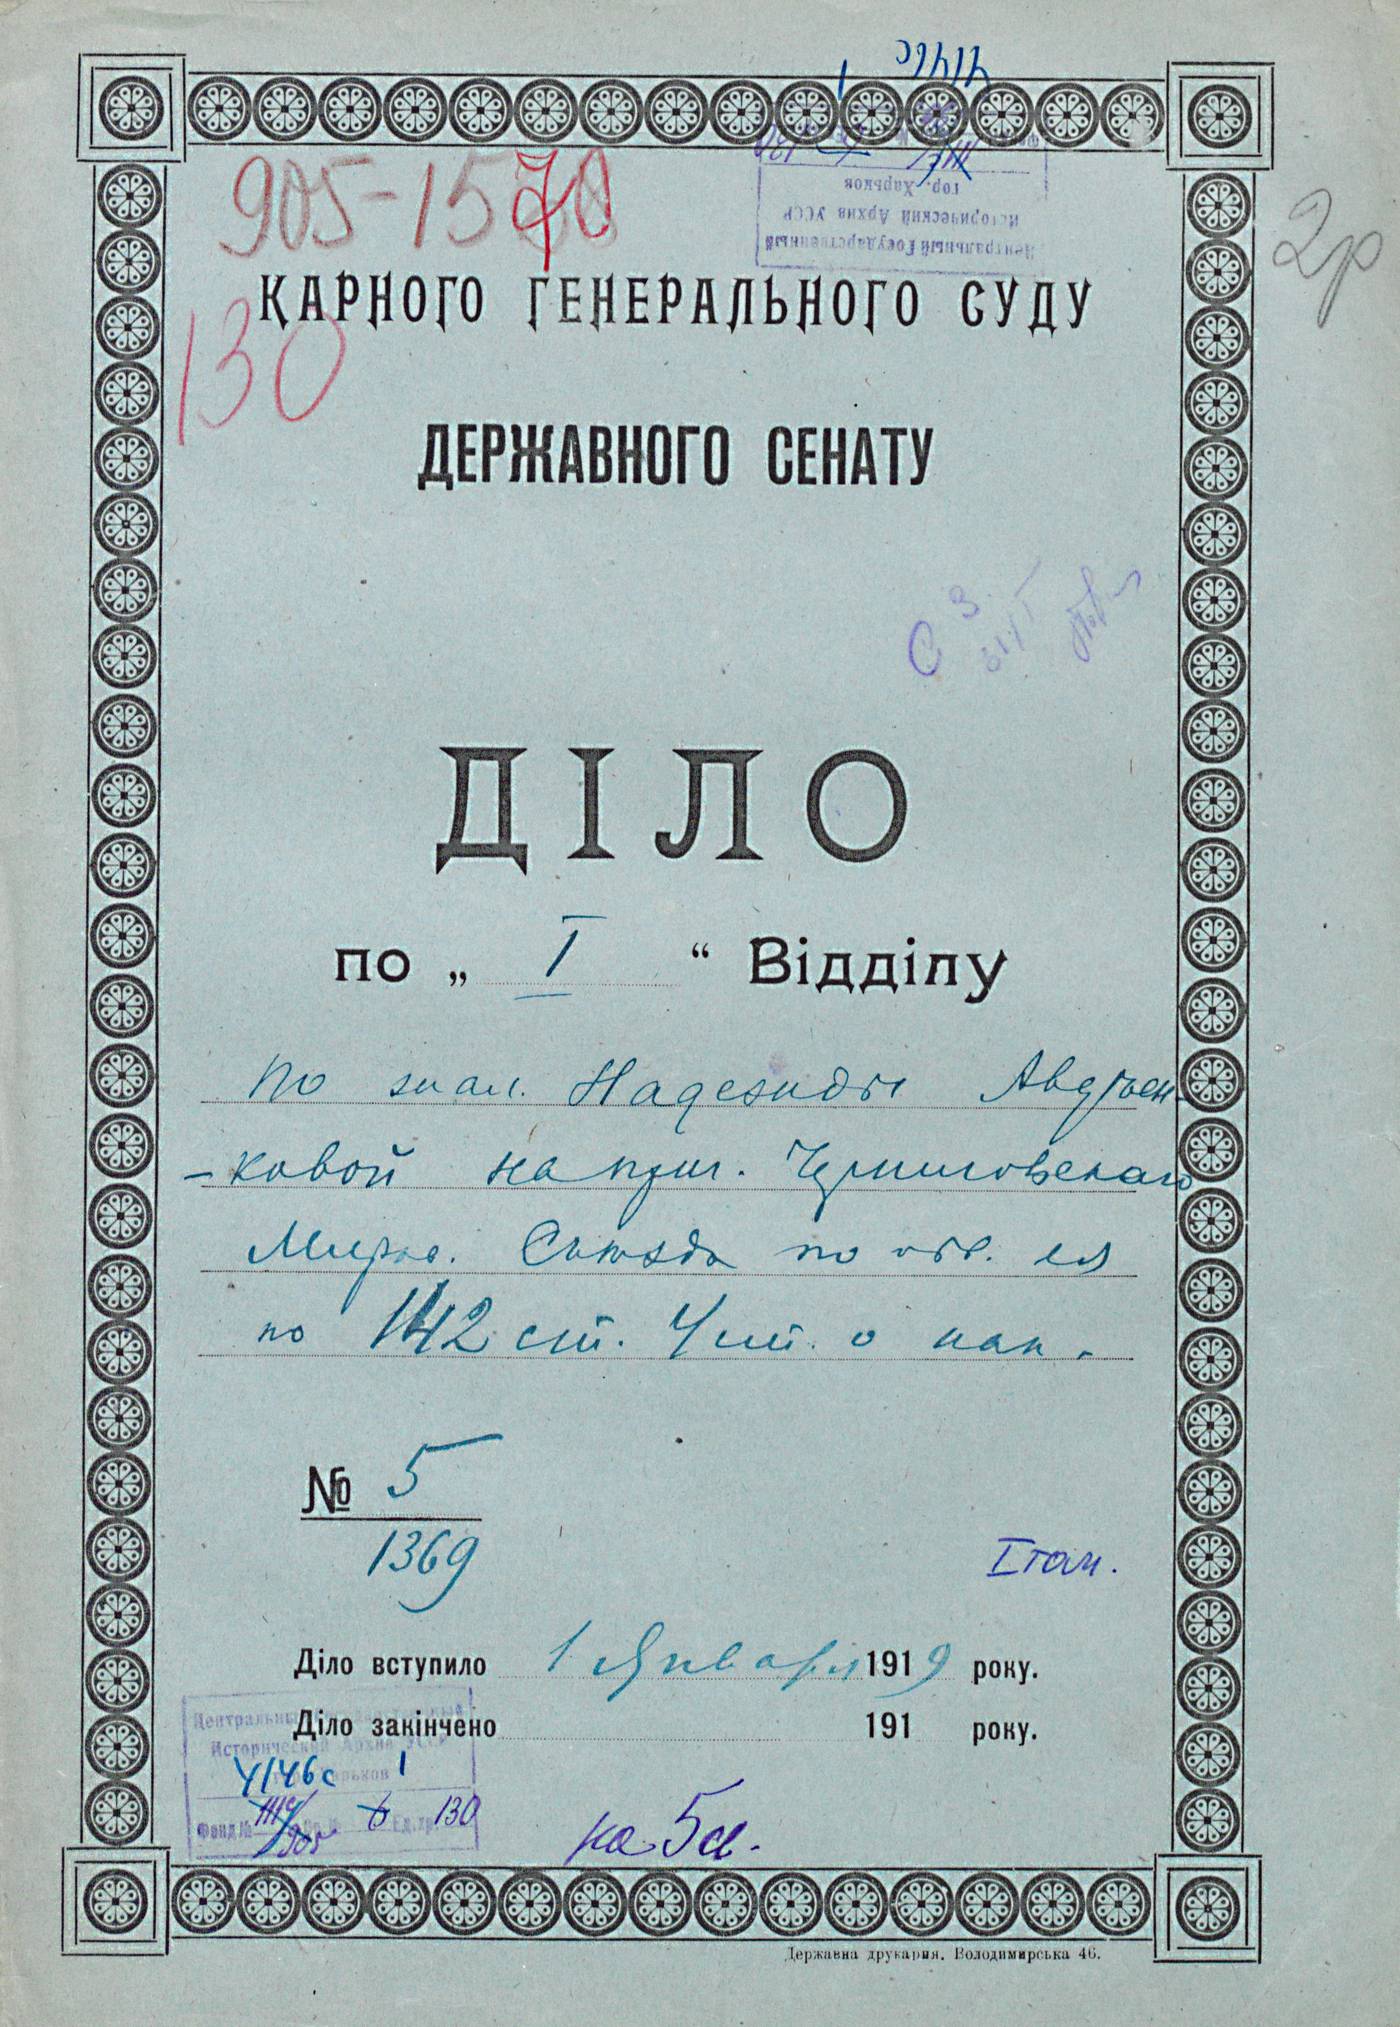 4146с
1
905-1570
130
2р
Центральный Государственный
Исторический Архив УССР
гор. Харьков
КАРНОГО ГЕНЕРАЛЬНОГО СУДУ
ДЕРЖАВНОГО СЕНАТУ
С 3
ДІЛО
по „ I “ Відділу
По жал. Надежды Авдѣен-
-ковой на приг. Черниговскаго
Миров. Съѣзда по обв. ея
по 142 ст. Уст. о нак.
№ 5
1369
I том.
Діло вступило 1 Января 1919 року.
Діло закінчено 191 року.
Центральный Государственный
Исторический Архив УССР
гор. Харьков
4146с 1
Фонд № 905 Оп. № 6 Ед. хр. 130
на 5 л.
Державна друкарня, Володимирська 46.